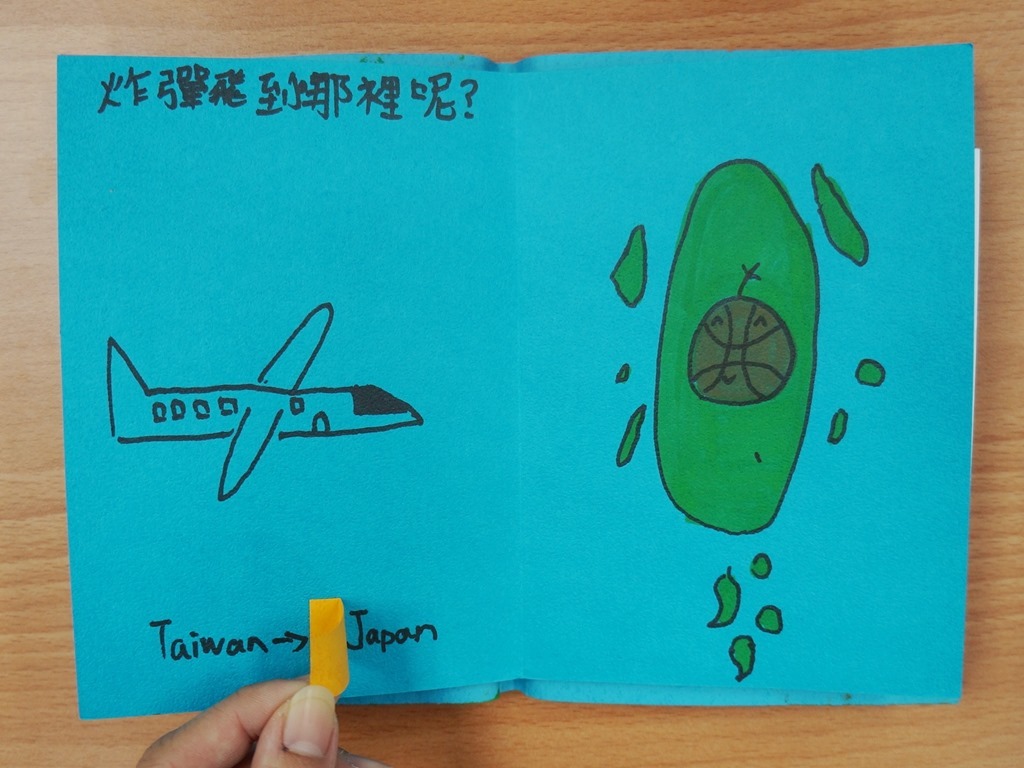 炸彈飛到哪裡呢?
Taiwan→ Japan